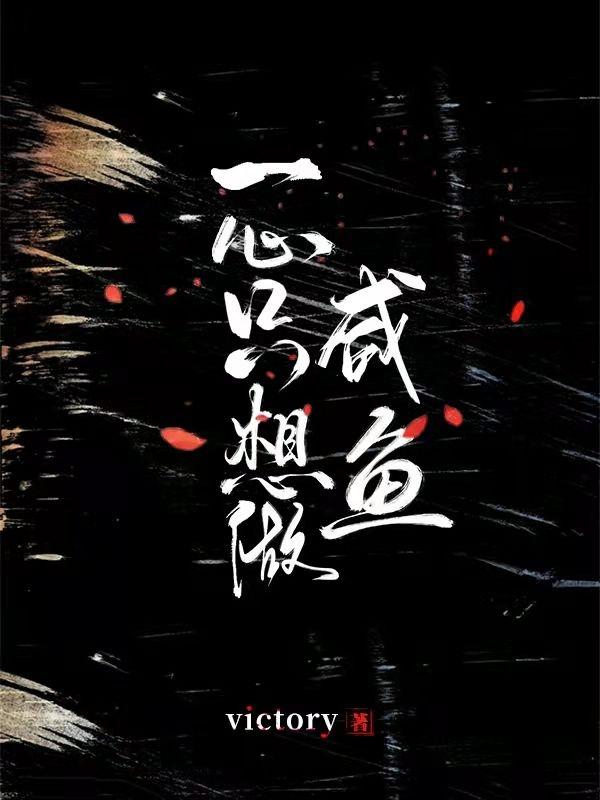 一心只想做
咸鱼
victory 著